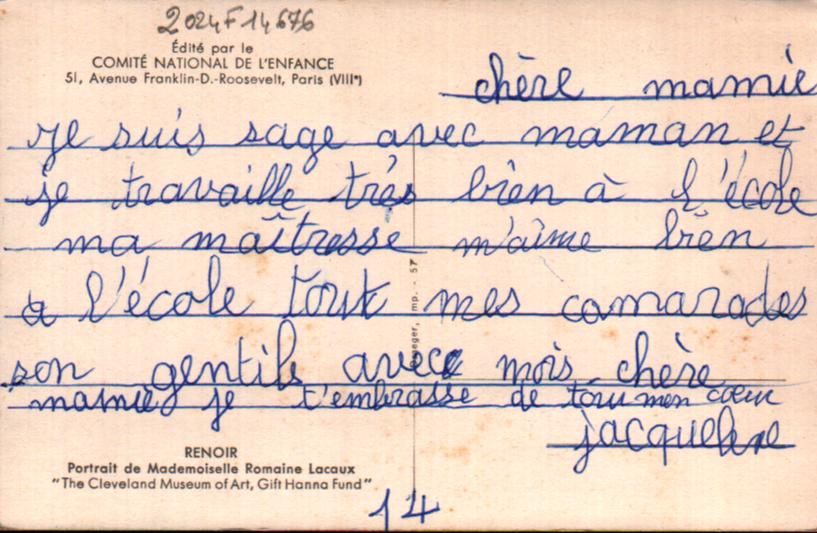 2024F14676
Édité par le
COMITÉ NATIONAL DE L'ENFANCE
51, Avenue Franklin-D.-Roosevelt, Paris (VIIIe)
chère mamie
je suis sage avec maman et
je travaille très bien à l'école
ma maîtresse m'aime bien
a l'école tout mes camarades
son gentils avec mois chère
mamie je t'embrasse de tou mon cœur
jacqueline
RENOIR
Portrait de Mademoiselle Romaine Lacaux
"The Cleveland Museum of Art, Gift Hanna Fund"
14
imp. - 57